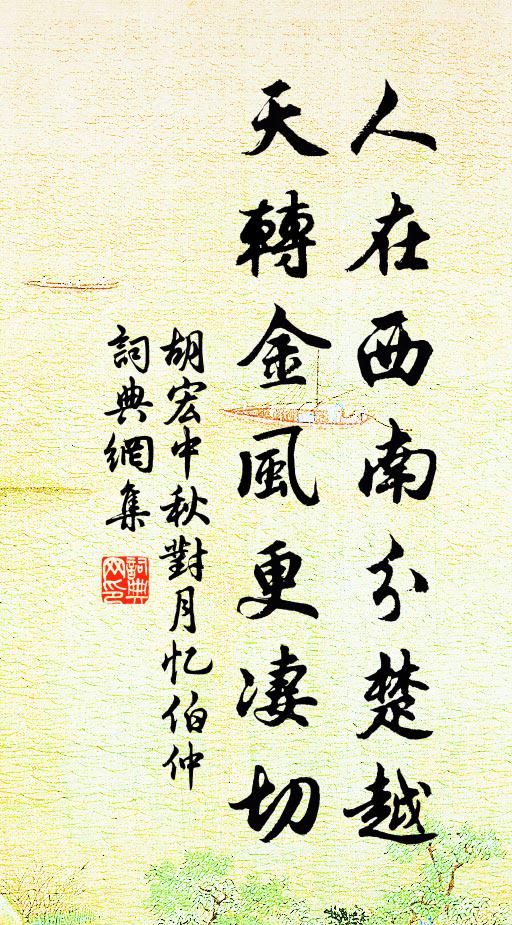 人在西南分楚越
天轉金風更凄切
胡宏中秋對月忆伯仲
詞典網集
詞典
网印